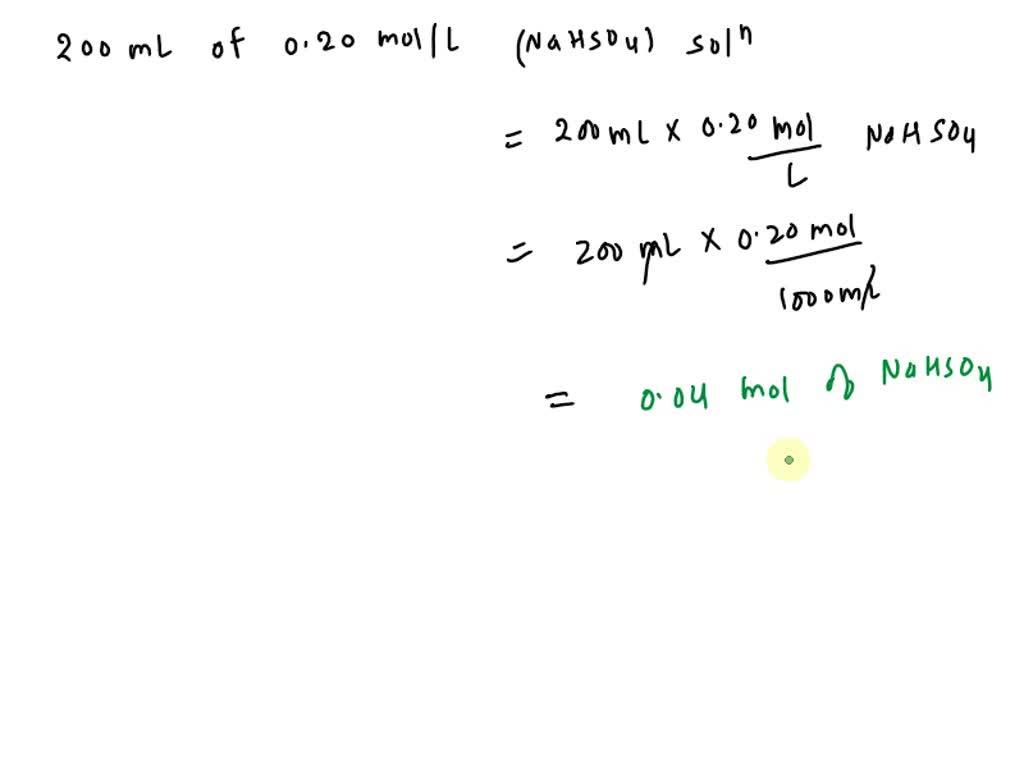 200 mL of 0.20 mol/L (NaHSO4) solⁿ
= 200 mL × 0.20 mol/L NaHSO4
= 200 mL × 0.20 mol/1000 mL
= 0.04 mol of NaHSO4